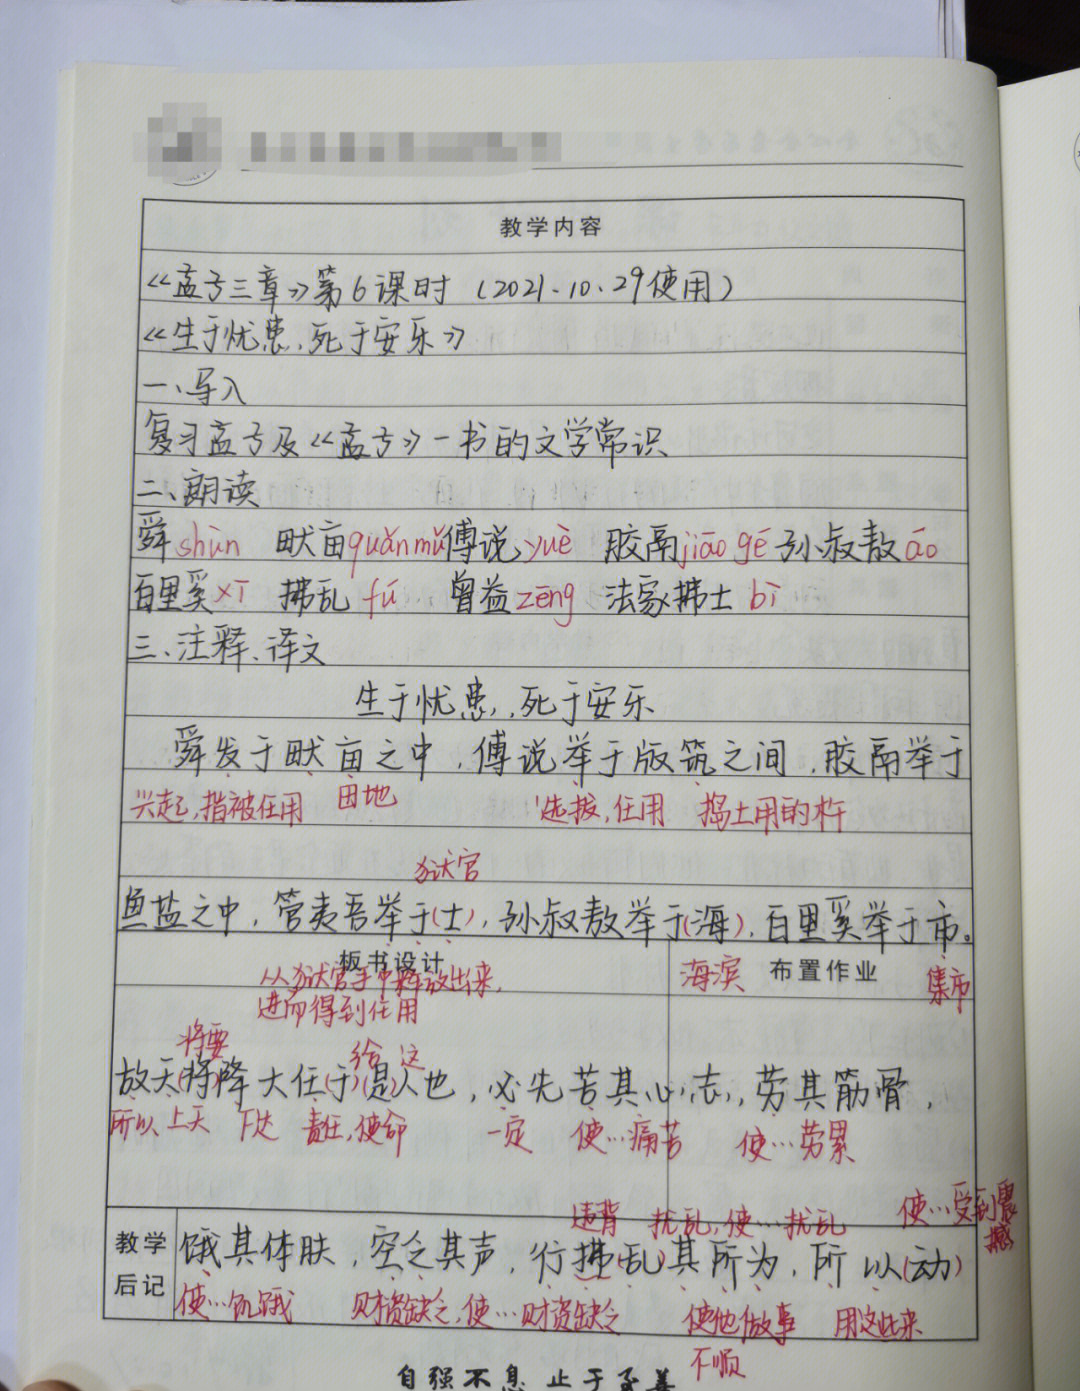 教学内容
《孟子三章》第6课时（2021.10.29使用）
《生于忧患,死于安乐》
一、导入
复习孟子及《孟子》一书的文学常识
二、朗读
舜shùn 畎亩quǎn mǔ 傅说yuè 胶鬲jiāo gé 孙叔敖áo
百里奚xī 拂乱fú 曾益zēng 法家拂士bì
三、注释、译文
生于忧患,死于安乐
舜发于畎亩之中,傅说举于版筑之间,胶鬲举于
兴起,指被任用 田地 选拔,任用 捣土用的杵
狱官
鱼盐之中,管夷吾举于(士),孙叔敖举于(海),百里奚举于市。
板书设计 海滨 布置作业 集市
从狱官手中释放出来,
进而得到任用
将要 给 这
故天(将)降大任(于)(是)人也,必先苦其心志,劳其筋骨,
所以 上天 下达 责任,使命 一定 使…痛苦 使…劳累
违背 扰乱,使…扰乱 使…受到震撼
教学后记 饿其体肤,空乏其声,行拂(乱)其所为,所以(动)
使…饥饿 财资缺乏,使…财资缺乏 使他做事 用这些来
不顺
自强不息 止于至善